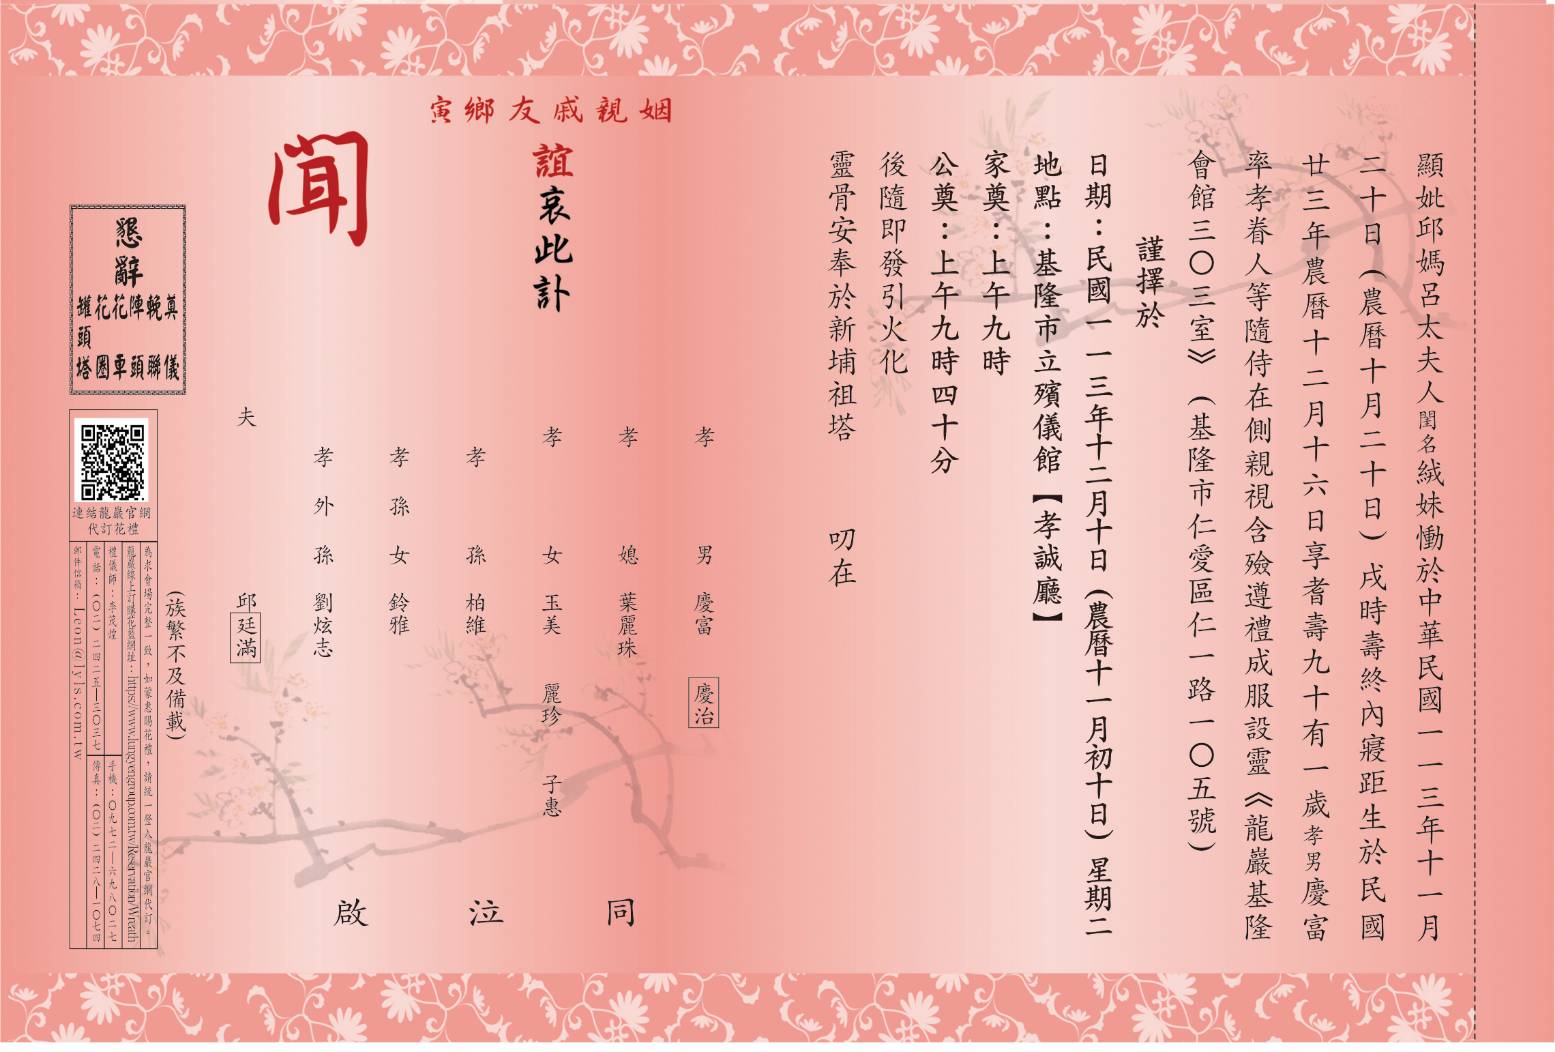 顯妣邱媽呂太夫人閨名絨妹慟於中華民國一一三年十一月
二十日(農曆十月二十日)戌時壽終內寢距生於民國
廿三年農曆十二月十六日享耆壽九十有一歲孝男慶富
率孝眷人等隨侍在側親視含殮遵禮成服設靈《龍巖基隆
會館三〇三室》(基隆市仁愛區仁一路一〇五號)
謹擇於
日期：民國一一三年十二月十日(農曆十一月初十日)星期二
地點：基隆市立殯儀館【孝誠廳】
家奠：上午九時
公奠：上午九時四十分
後隨即發引火化
靈骨安奉於新埔祖塔 叨在
姻親戚友鄉寅
誼哀此訃
聞
孝男 慶富 慶治
孝媳 葉麗珠
孝女 玉美 麗珍 子惠
孝孫 柏維
孝孫女 鈴雅
孝外孫 劉炫志
夫 邱廷滿
同泣啟
(族繁不及備載)
懇辭
奠儀
輓聯
陣頭
花車
花圈
罐頭塔
連結龍巖官網
代訂花禮
為求會場完整一致，如蒙惠賜花禮，請統一登入龍巖官網代訂。
龍巖線上訂購花籃網址：https://www.lungyengroup.com.tw/Reservation/Wreath
禮儀師：李茂煌
手機：〇九七二—六九八〇二七
電話：(〇二)二四二五—三〇三七
傳真：(〇二)二四二八—一〇七四
郵件信箱：Leon@lyls.com.tw